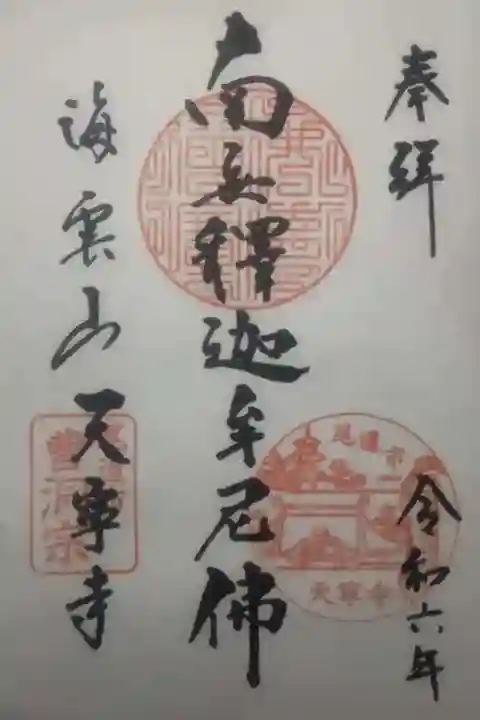 奉拝
令和六年
南无釋迦牟尼佛
海雲山天寧寺
尾道市
天寧寺
曹洞宗